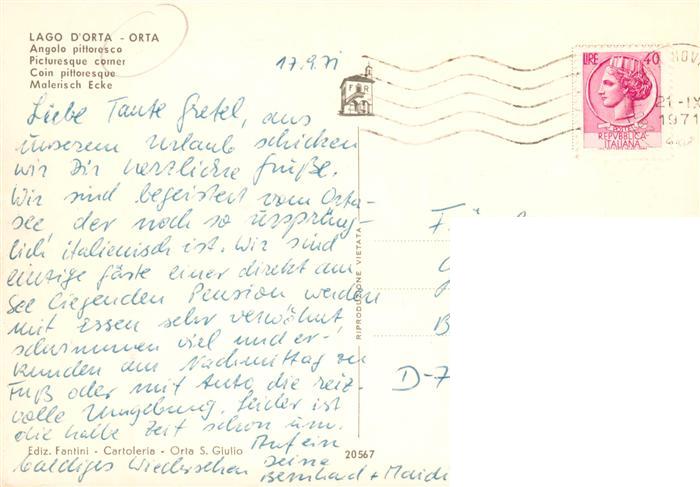 LAGO D'ORTA - ORTA
Angolo pittoresco
Picturesque corner
Coin pittoresque
Malerisch Ecke
17.9.71
Liebe Tante Gretel, aus
unserem Urlaub schicken
wir Dir herzliche Grüße.
Wir sind begeistert vom Orta-
see, der noch so ursprüng-
lich italienisch ist. Wir sind
einzige Gäste einer direkt am
See liegenden Pension werden
mit Essen sehr verwöhnt,
schwimmen viel und er-
kunden am Nachmittag zu
Fuß oder mit Auto die reiz-
volle Umgebung. Leider ist
die halbe Zeit schon um.
Auf ein
baldiges Wiedersehen Deine
Bernhard + Maidi
Ediz. Fantini - Cartoleria - Orta S. Giulio
20567
RIPRODUZIONE VIETATA
LIRE 40
REPVBBLICA
ITALIANA
NOV
21-IX
1971
D-7